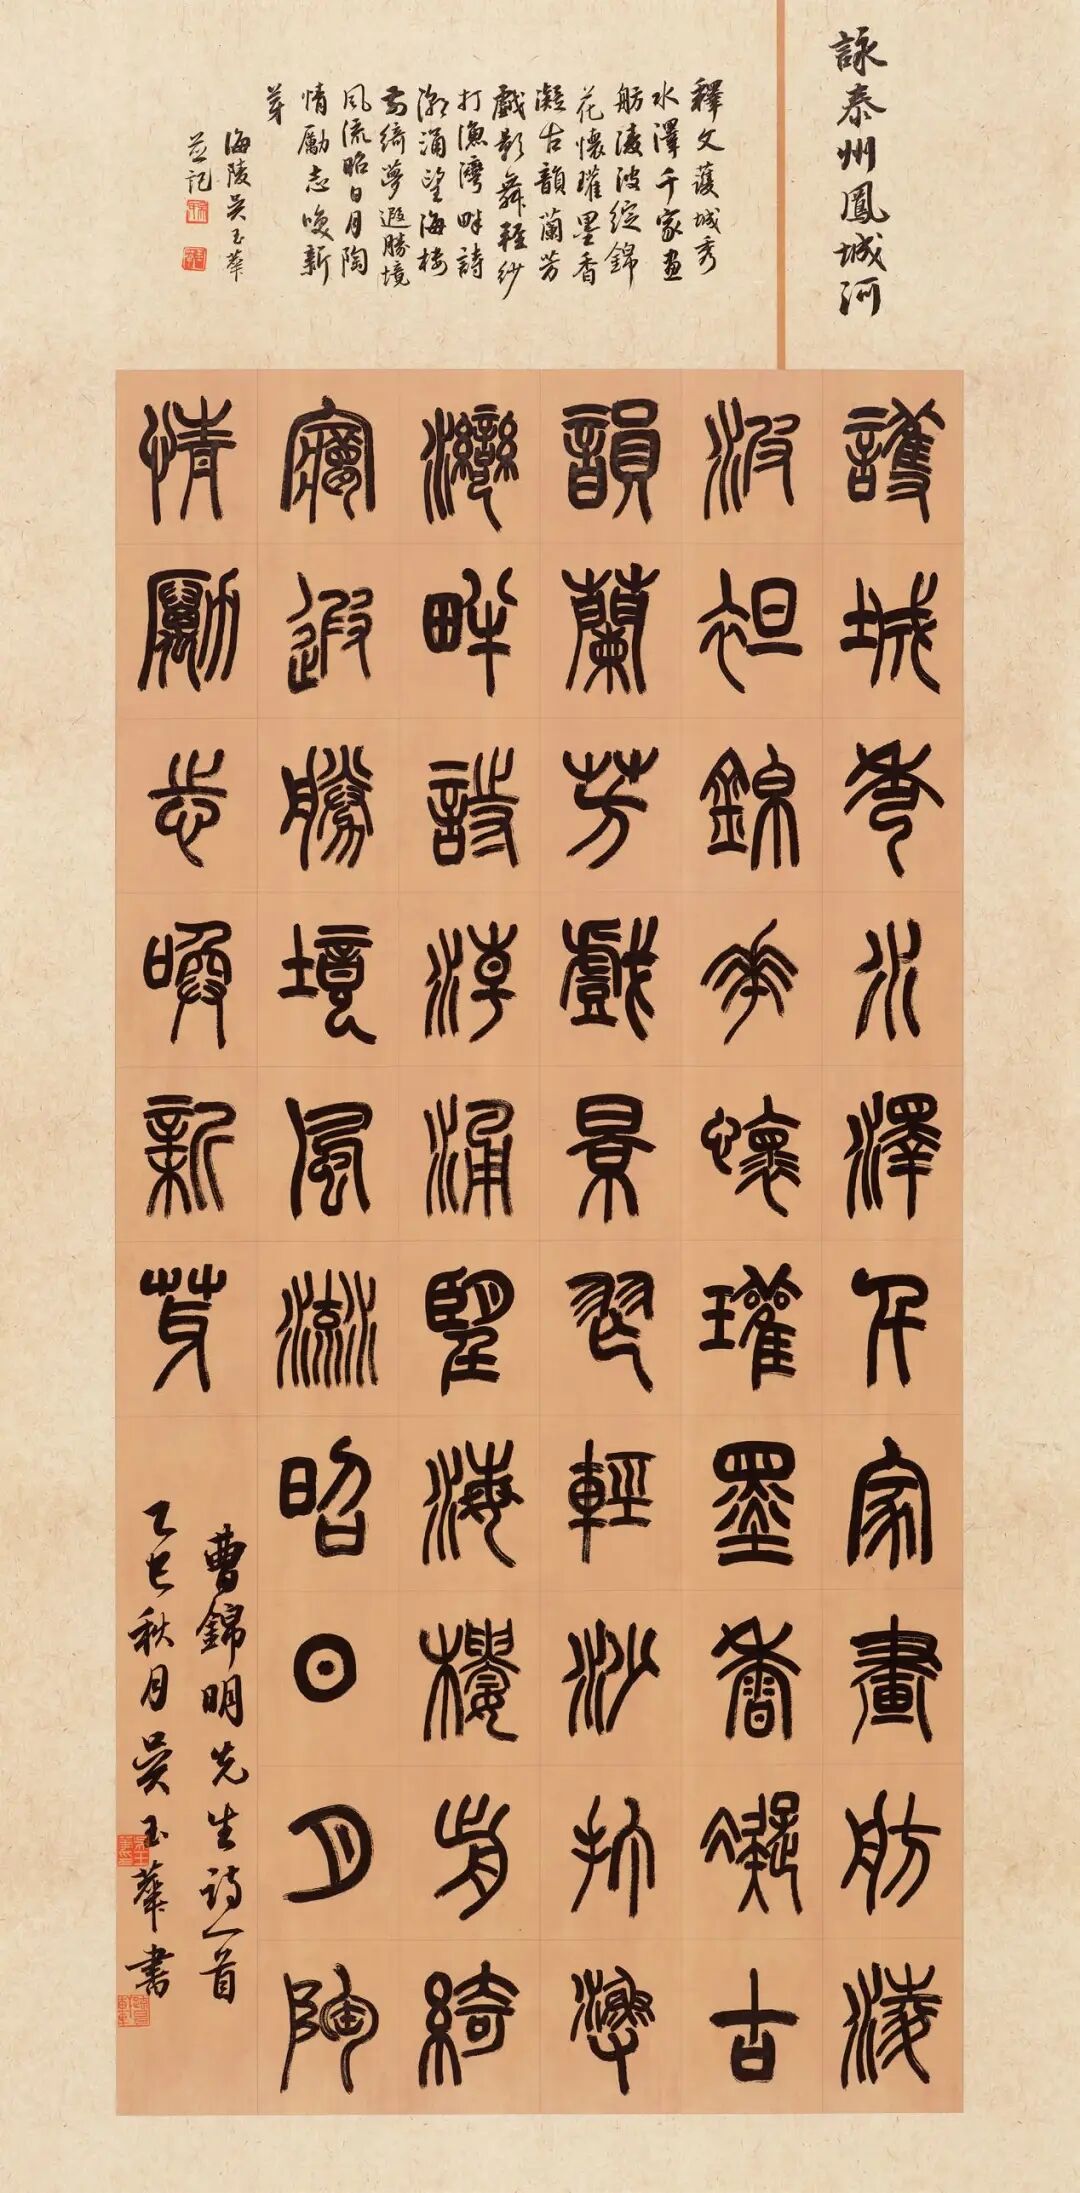 詠泰州鳳城河
釋文護城秀
水澤千家畫
舫淩波綻錦
花懷瓘墨香
凝古韻蘭芳
戲影舞輕紗
打漁灣畔詩
潮涌望海樓
前綺夢遐勝境
風流昭日月陶
情勵志喚新
芽
海陵吳玉華
並記
護城秀水澤千家畫舫淩
波袒錦花懷瓘墨香凝古
韻蘭芳戲景舞輕沙打漁
灣畔詩潮涌望海樓前綺
夢遐勝境風流昭日月陶
情勵志喚新芽
曹錦明先生詩一首
乙巳秋月吳玉華書